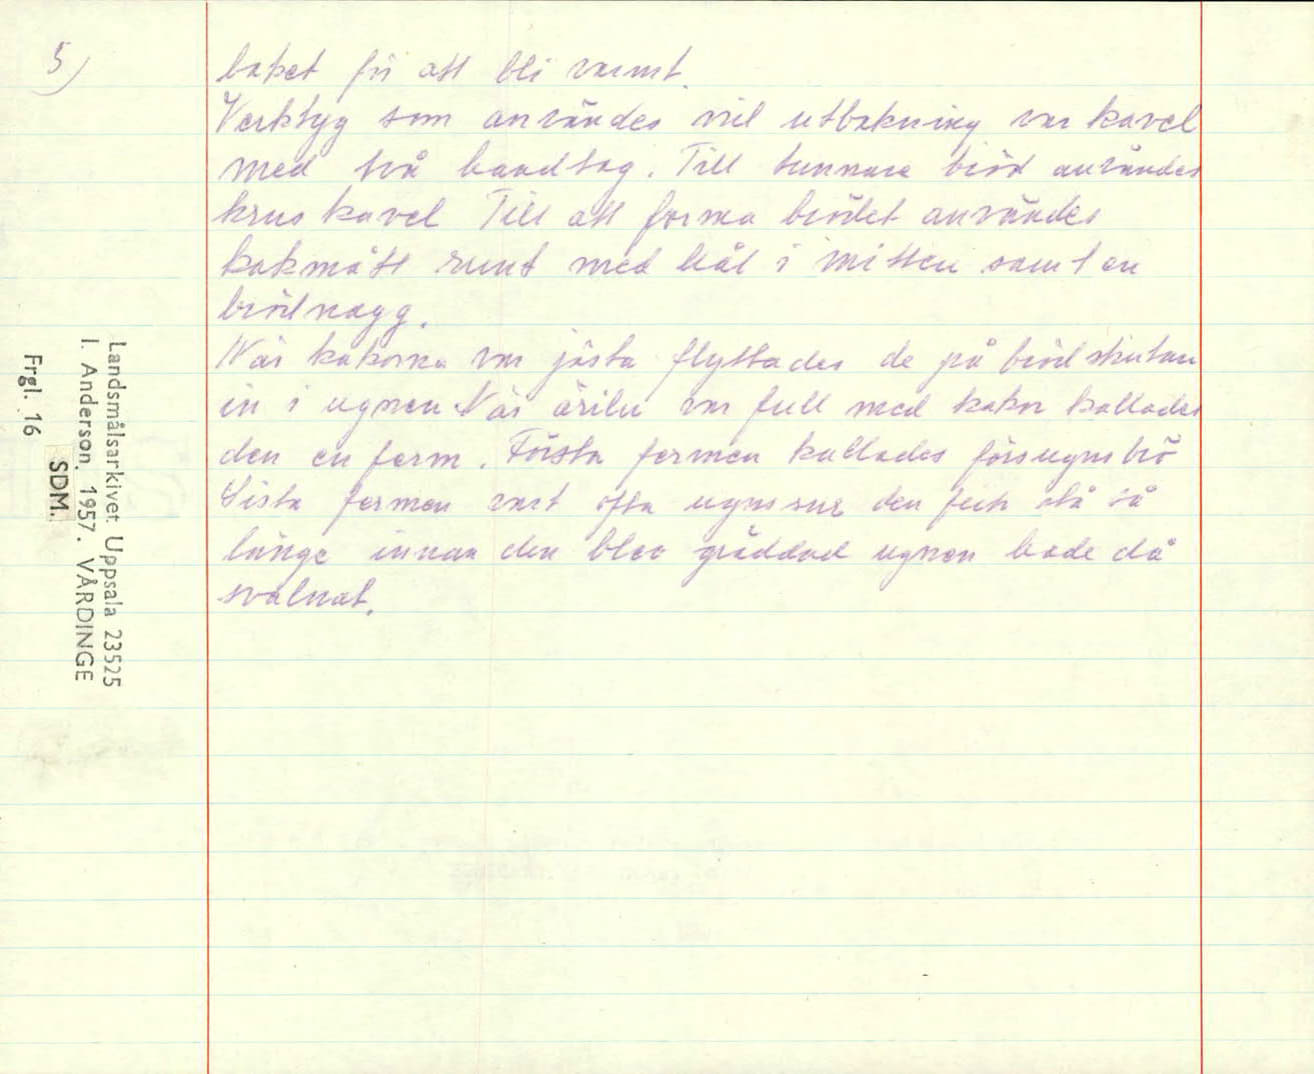 5)
baket för att bli varmt.
Verktyg som användes vid utbakning var kavel
med två handtag. Till tunnare bröd användes
krus kavel Till att forma brödet användes
kakmått runt med hål i mitten samt en
brödnagg.
När kakorna var jästa flyttades de på brödskutan
in i ugnen. När äriln var full med kakor kallades
den en ferm. Första fermen kallades försugnsbrö
Sista fermen vart ofta ugnssur den feck stå så
länge innan den blev gräddad ugnen hade då
svalnat.
Landsmålsarkivet, Uppsala 23525
I. Anderson. 1957. VÅRDINGE
SDM.
Frgl. 16